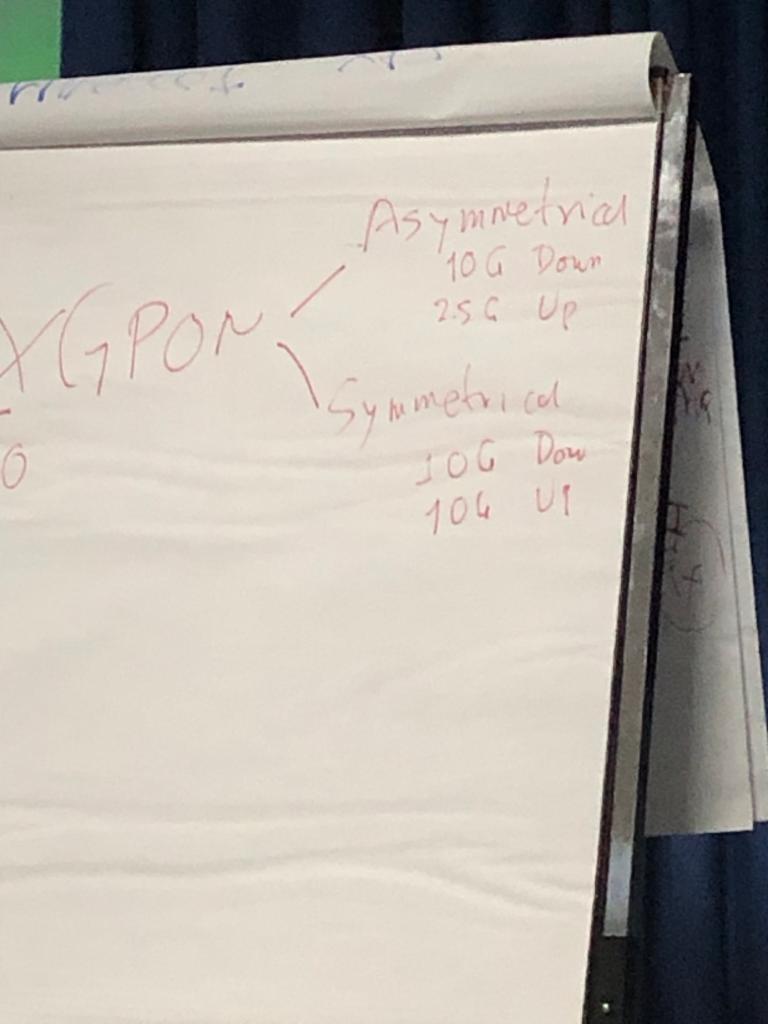 Asymmetrical
10G Down
2.5G Up
XGPON
Symmetrical
10G Dow
10G Up
0